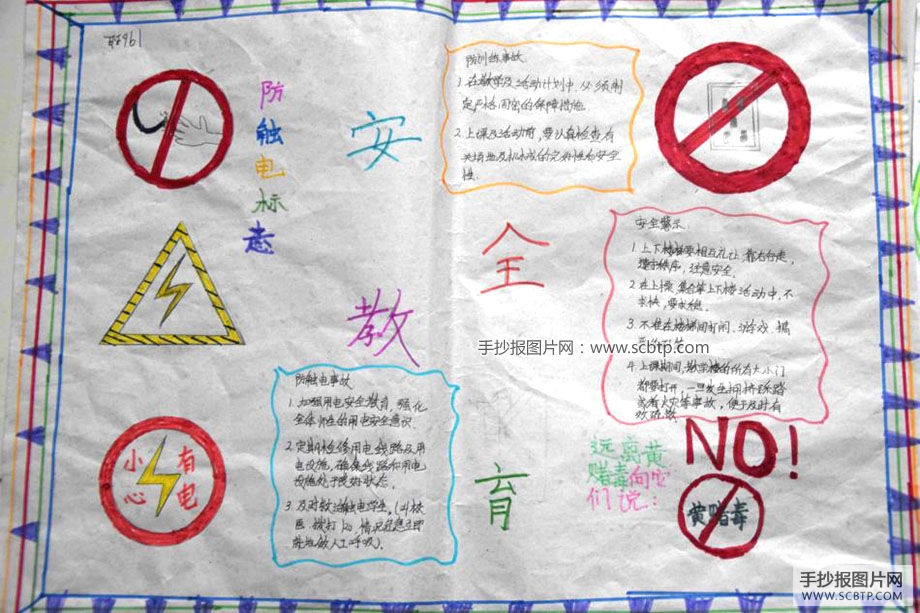 防触电标志
安全教育
防训练事故
1.在教学及活动计划中,必须制
定严格、周密的保障措施.
2.上课及活动前,要认真检查有
关场地及机械的完好性和安全
性.
安全警示:
1.上下楼梯要相互礼让,靠右行走,
遵守秩序,注意安全.
2.在上操、集合等上下楼活动中,不
求快,要求稳.
3.不准在楼梯间打闹、游戏、搞
4.上课期间,教学楼的所有大小门
都要打开,一旦发生拥挤
或者火灾等事故,便于及时有
效
手抄报图片网:www.scbtp.com
防触电事故
1.加强用电安全教育,强化
全体师生的用电安全意识.
2.定期检修用电线路及用
电设施,确保线路和用电
设施处于良好状态.
3.及时救治触电学生.
医、拨打120,情况
就地做人工呼吸).
小心有电
远离黄
赌毒向它
们说:
NO!
黄赌毒
手抄报图片网
WWW.SCBTP.COM